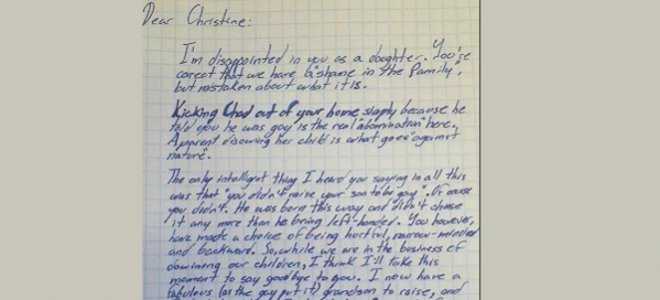 Dear Christine:
I'm disappointed in you as a daughter. You're
correct that we have a "shame in the family",
but mistaken about what it is.
Kicking Chad out of your home simply because he
told you he was gay is the real "abomination" here.
A parent disowning her child is what goes "against
nature".
The only intelligent thing I heard you saying in all this
was that "you didn't raise your son to be gay". Of course
you didn't. He was born this way and didn't choose
it any more than he being left-handed. You however,
have made a choice of being hurtful, narrow-minded
and backward. So, while we are in the business of
disowning our children, I think I'll take this
moment to say goodbye to you. I now have a
fabulous (as the gay put it) grandson to raise, and